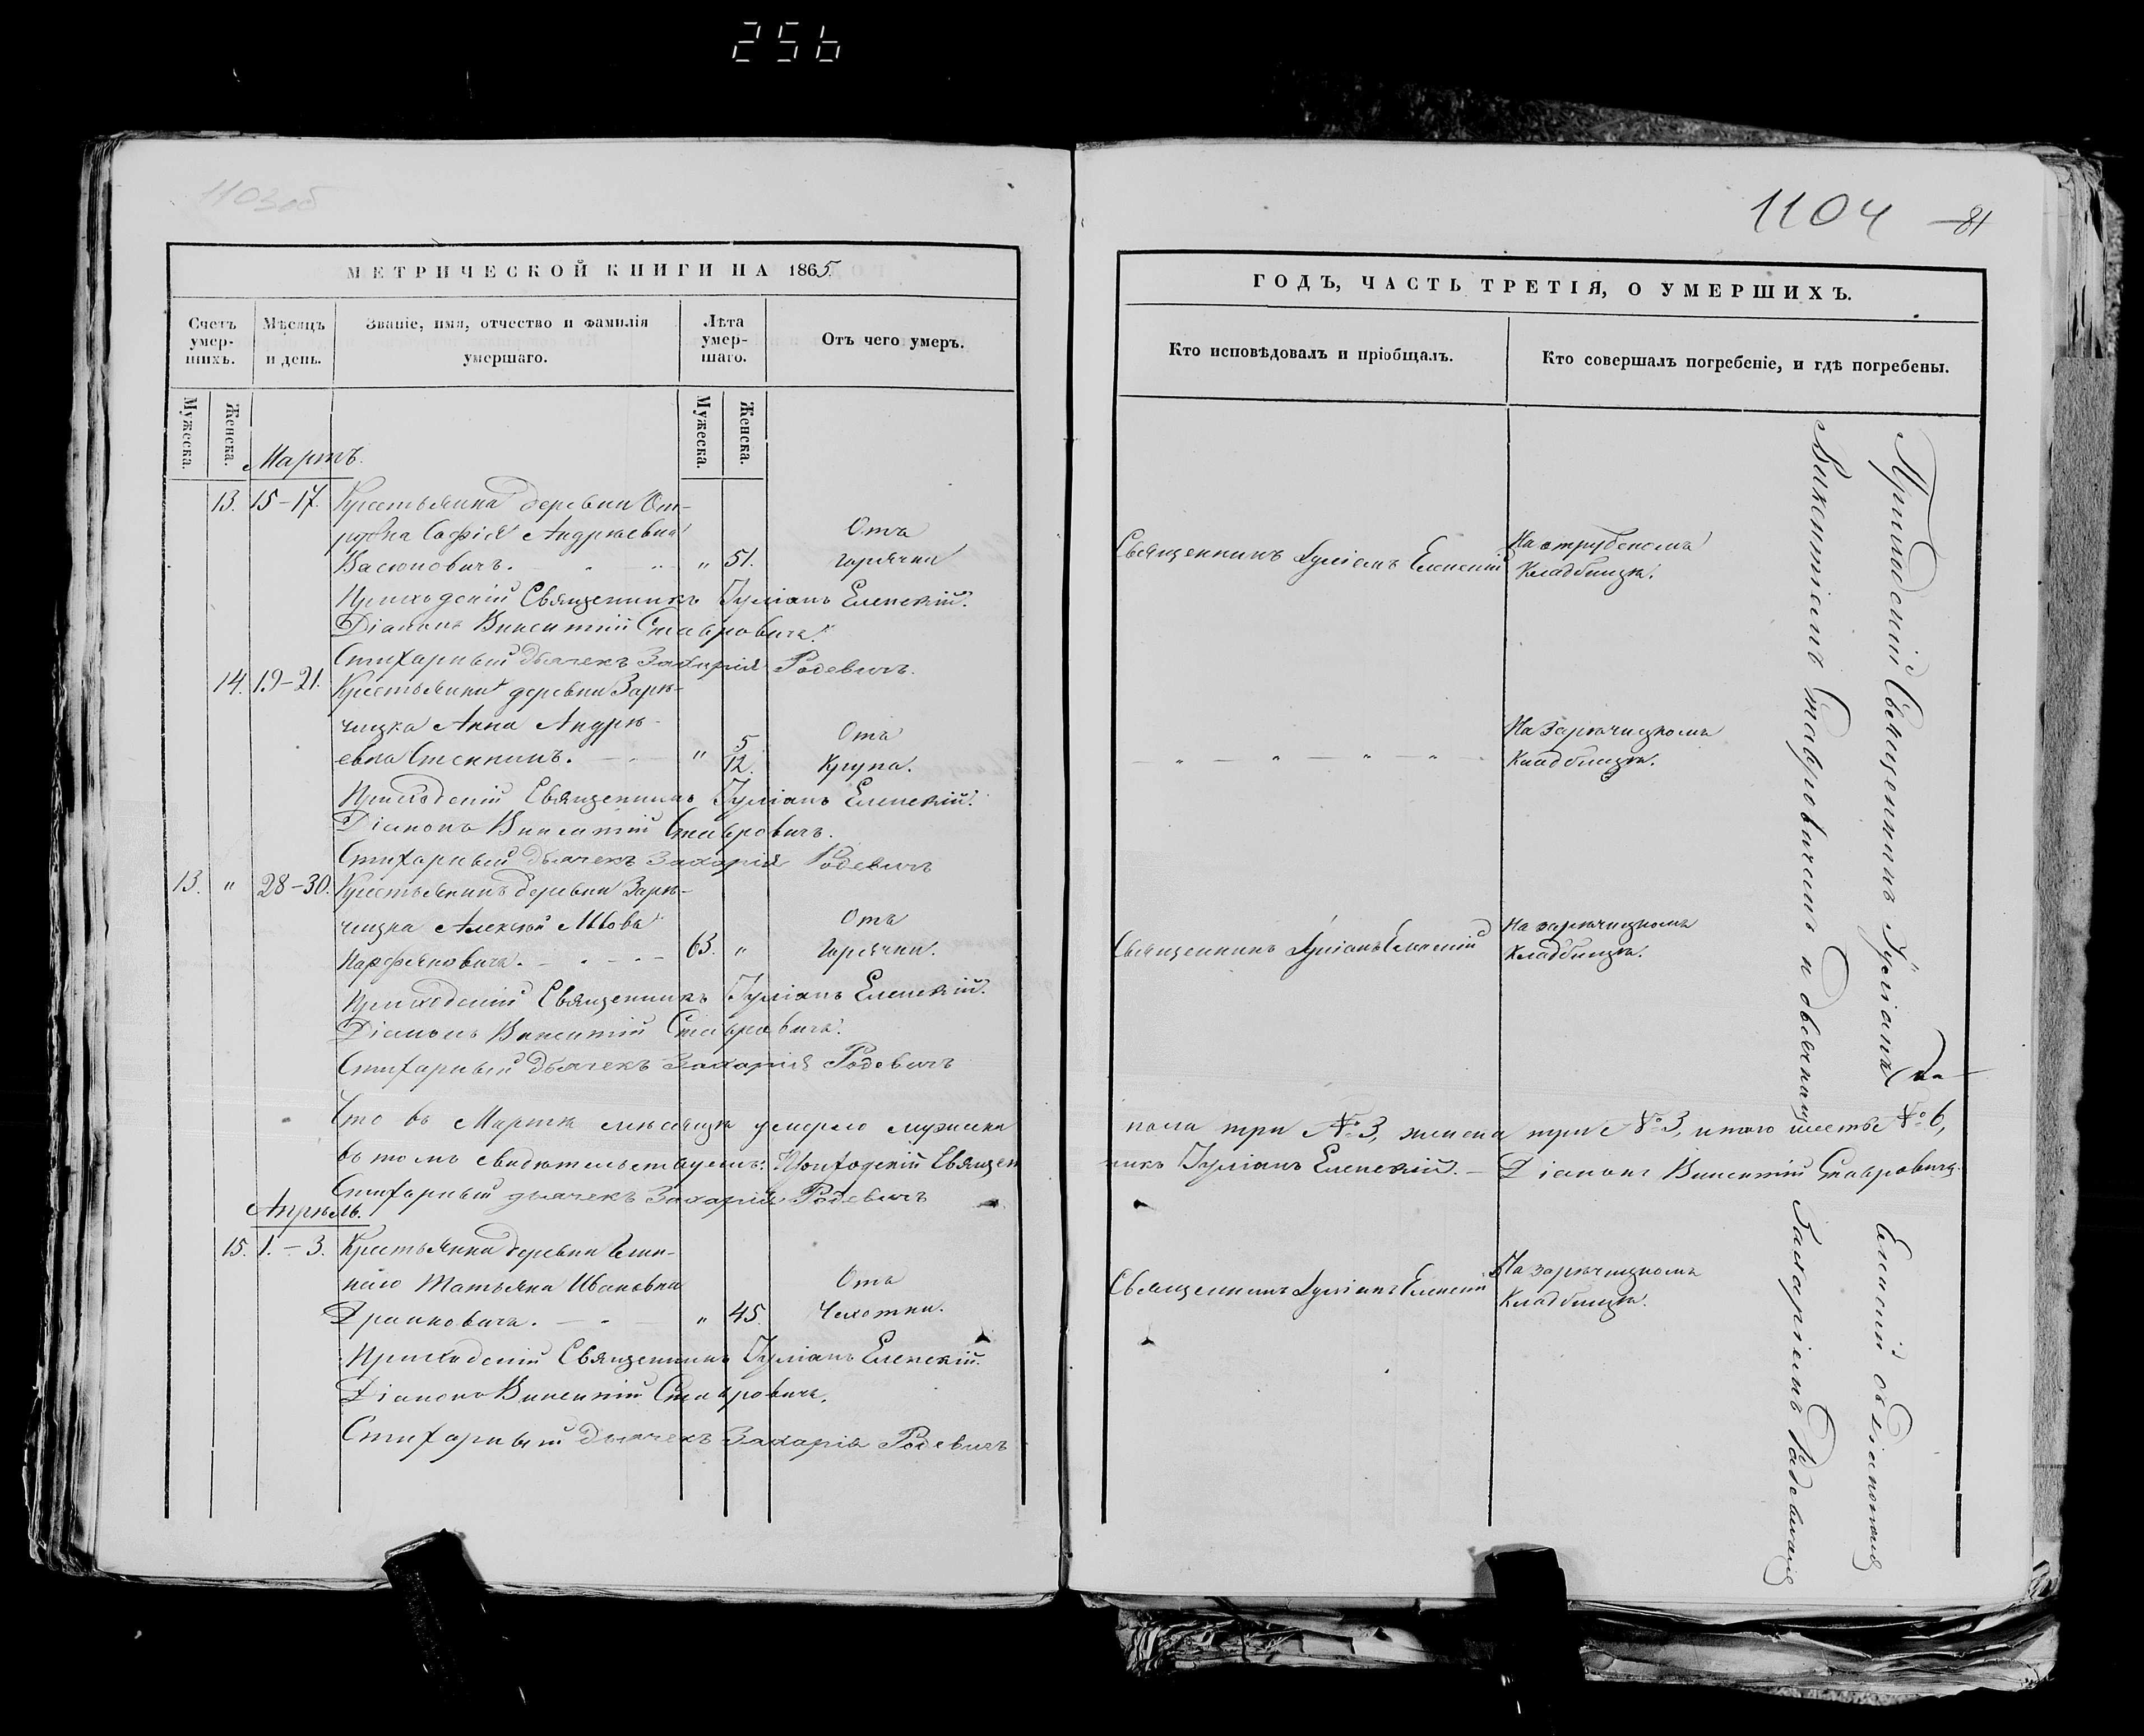 256
1103об
1104
81
МЕТРИЧЕСКОЙ КНИГИ НА 1865
Счетъ умер-шихъ.
Мѣсяцъ и день.
Званіе, имя, отчество и фамилія умершаго.
Лѣта умер-шаго.
Отъ чего умеръ.
Мужеска.
Женска.
Мужеска.
Женска.
Мартъ.
13. 15-17. Крестьянка деревни От-
рубка Софія Андреевна Отъ
Васюковичъ. " 51. горячки
Приходскій Священникъ Іуліанъ Еленскій.
Діаконъ Викентій Ставровичъ.
Стихарный дьячекъ Захарія Родевичъ.
14. 19-21. Крестьянка деревни Зарѣ-
чицка Анна Андрѣ- 5 Отъ
евна " 12. Крупа.
Приходскій Священникъ Іуліанъ Еленскій.
Діаконъ Викентій Ставровичъ.
Стихарный дьячекъ Захарія Родевичъ
13. " 28-30. Крестьянинъ деревни Зарѣ-
чицка Алексѣй Львовъ Отъ
Парфяновичъ. 63. " Горячки.
Приходскій Священникъ Іуліанъ Еленскій.
Діаконъ Викентій Ставровичъ.
Стихарный дьячекъ Захарія Родевичъ
Что въ Мартѣ мѣсяцѣ умерло мужеска
въ томъ свидѣтельствуемъ: Приходскій Священ
Стихарный дьячекъ Захарія Родевичъ
Апрѣль.
15. 1.-3. Крестьянка деревни
Татьяна Ивановна Отъ
" 45. Чахотки.
Приходскій Священникъ Іуліанъ Еленскій.
Діаконъ Викентій Ставровичъ.
Стихарный дьячекъ Захарія Родевичъ
ГОДЪ, ЧАСТЬ ТРЕТІЯ, О УМЕРШИХЪ.
Кто исповѣдовалъ и пріобщалъ.
Кто совершалъ погребеніе, и гдѣ погребены.
Священникъ Іуліанъ Еленскій
На отрубскомъ
Кладбищѣ.
На Зарѣчицкомъ
Кладбищѣ.
Священникъ Іуліанъ Еленскій
На зарѣчицкомъ
Кладбищѣ.
пола три № 3, женска три № 3, итого шесть № 6,
никъ Іуліанъ Еленскій. Діаконъ Викентій Ставровичъ.
Священникъ Іуліанъ Еленскій
На зарѣчицкомъ
Кладбищѣ.
Приходскій Священникъ Іуліанъ Еленскій съ діакономъ
Викентіемъ Ставровичемъ и дьячкомъ Захаріемъ Родевичемъ